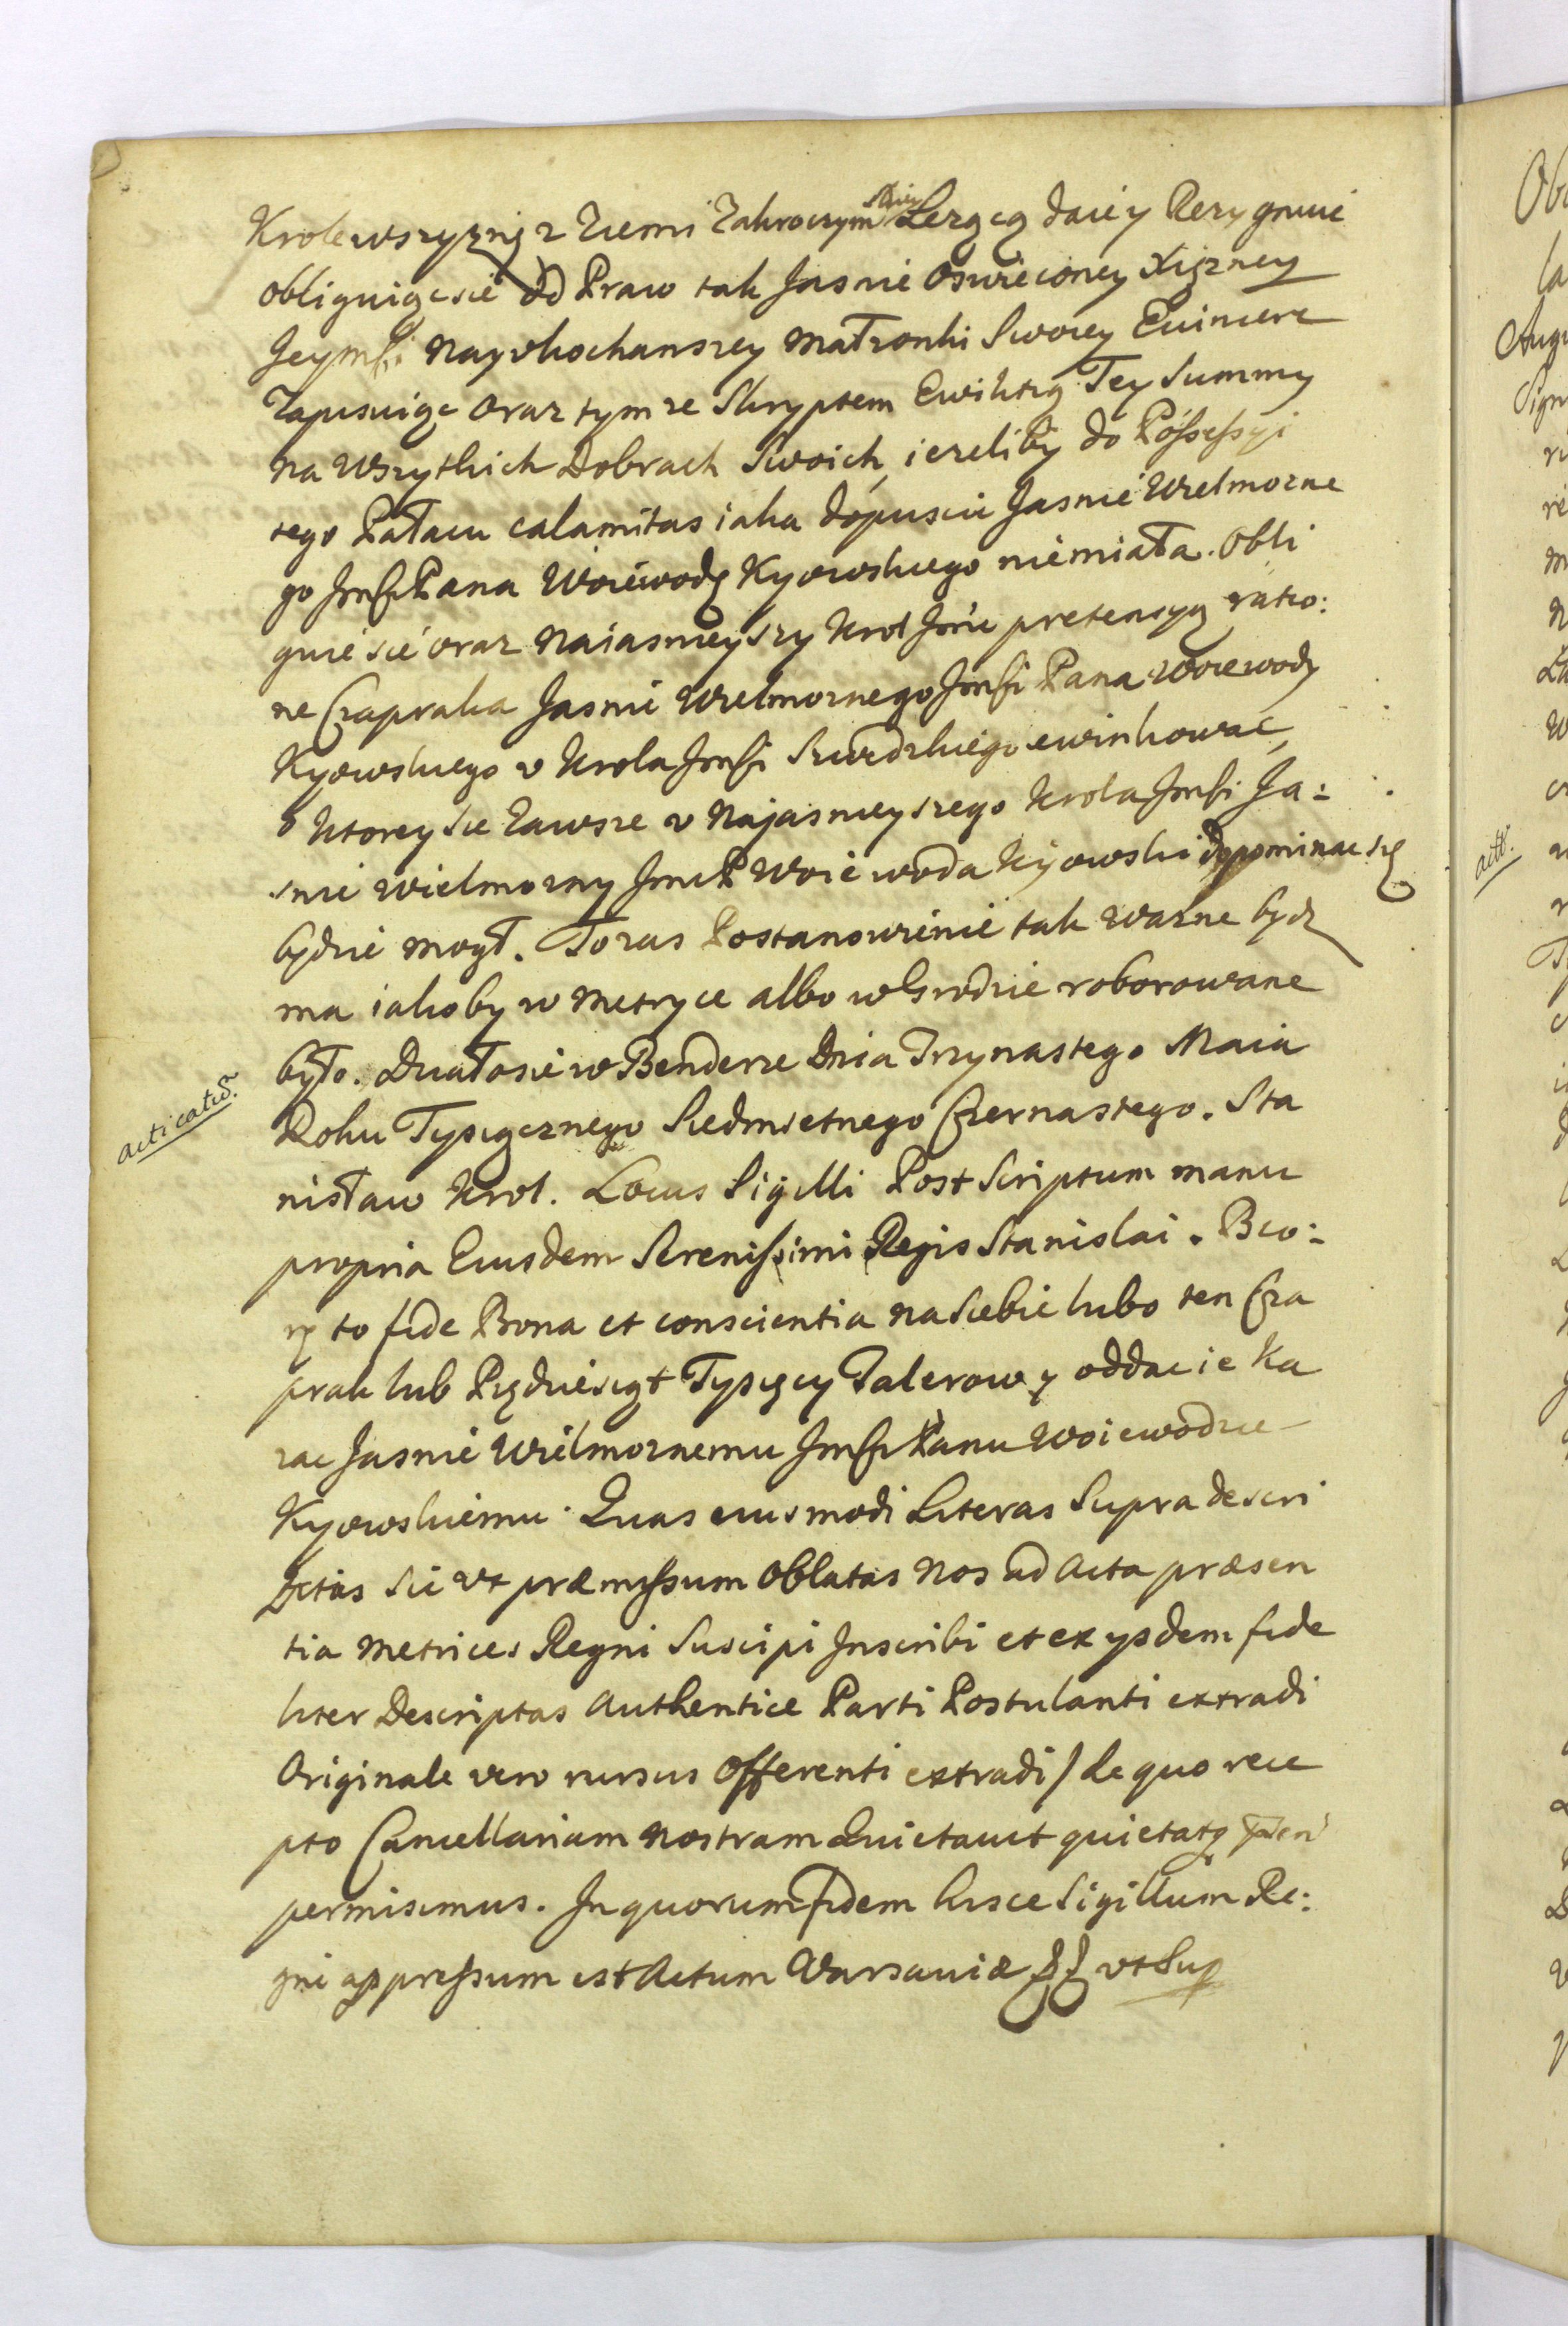 Krolewszyznę z Ziemi Zakroczymskiey Lezącą daie y Rezygnuie
obliguiąc sie od Praw tak Jasnie Oswieconey Xiężney
Jeymści Nayukochanszey Małzonki Swoiey Euincere
Zapisuiąc oraz tymze Skryptem Ewikcią Tey Summy
na Wszytkich Dobrach Swoich, iezeliby do Possessyi
tego Pałacu calamitas iaka dopuscic Jasnie Wielmozne
go Jmści Pana Woiewodę Kyowskiego niemiała. Obli
guie sie oraz Naiasnieyszy Krol Jmć pretensyą ratio:
ne Czapraka Jasnie Wielmoznego Jmści Pana Woiewody
Kyowskiego v Krola Jmści Szwedzkiego ewinkowac,
o Ktorey sie Zawsze v Najasnieyszego Krola Jmści Ja:
snie Wielmozny Jmć P Woiewoda Kijowski dopominac się
będzie mogł. To zas Postanowienie tak wazne bydz
ma iakoby w Metryce albo w Grodzie roborowane
było. Działo sie w Benderze Dnia Trzynastego Maia
acticatio.
Roku Tysiącznego Siedmsetnego Czernastego. Sta
nisław Krol. Locus Sigilli Post Scriptum manu
propria Eiusdem Serenissimi Regis Stanislai. Bio:
rę to fide Bona et conscientia na Siebie lubo ten Cza
prak lub Pięcdziesiąt Tysięcy Talerow y oddac ie Ka
zac Jasnie Wielmoznemu Jmści Panu Woiewodzie
Kyowskiemu. Quas eiusmodi Literas Supra descri
ptas sic vt præmissum Oblatas Nos ad Acta præsen
tia Metrices Regni Suscipi Inscribi et ex ysdem fide
liter Descriptas Authentice Parti Postulanti extradi
Originale vero rursus Offerenti extradi / de quo rece
pto Cancellariam Nostram Quietauit quietatq
permisimus. In quorum fidem hisce Sigillum Re:
gni appressum est Actum Varsaviæ vt Sup
actt.